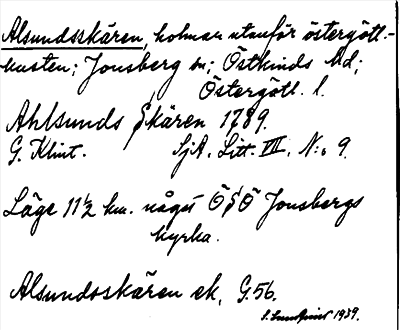 Alsundsskären, holmar utanför östergötl.-
kusten; Jonsberg sn; Östkinds hd;
Östergötl. l.
Ahlsunds Skären 1789.
G. Klint. SjA. Litt. VII. N:o 9.
Läge 11½ km. något Ö S Ö Jonsbergs
kyrka.
Alsundsskären ek. G.56.
S. Lundqvist 1939.